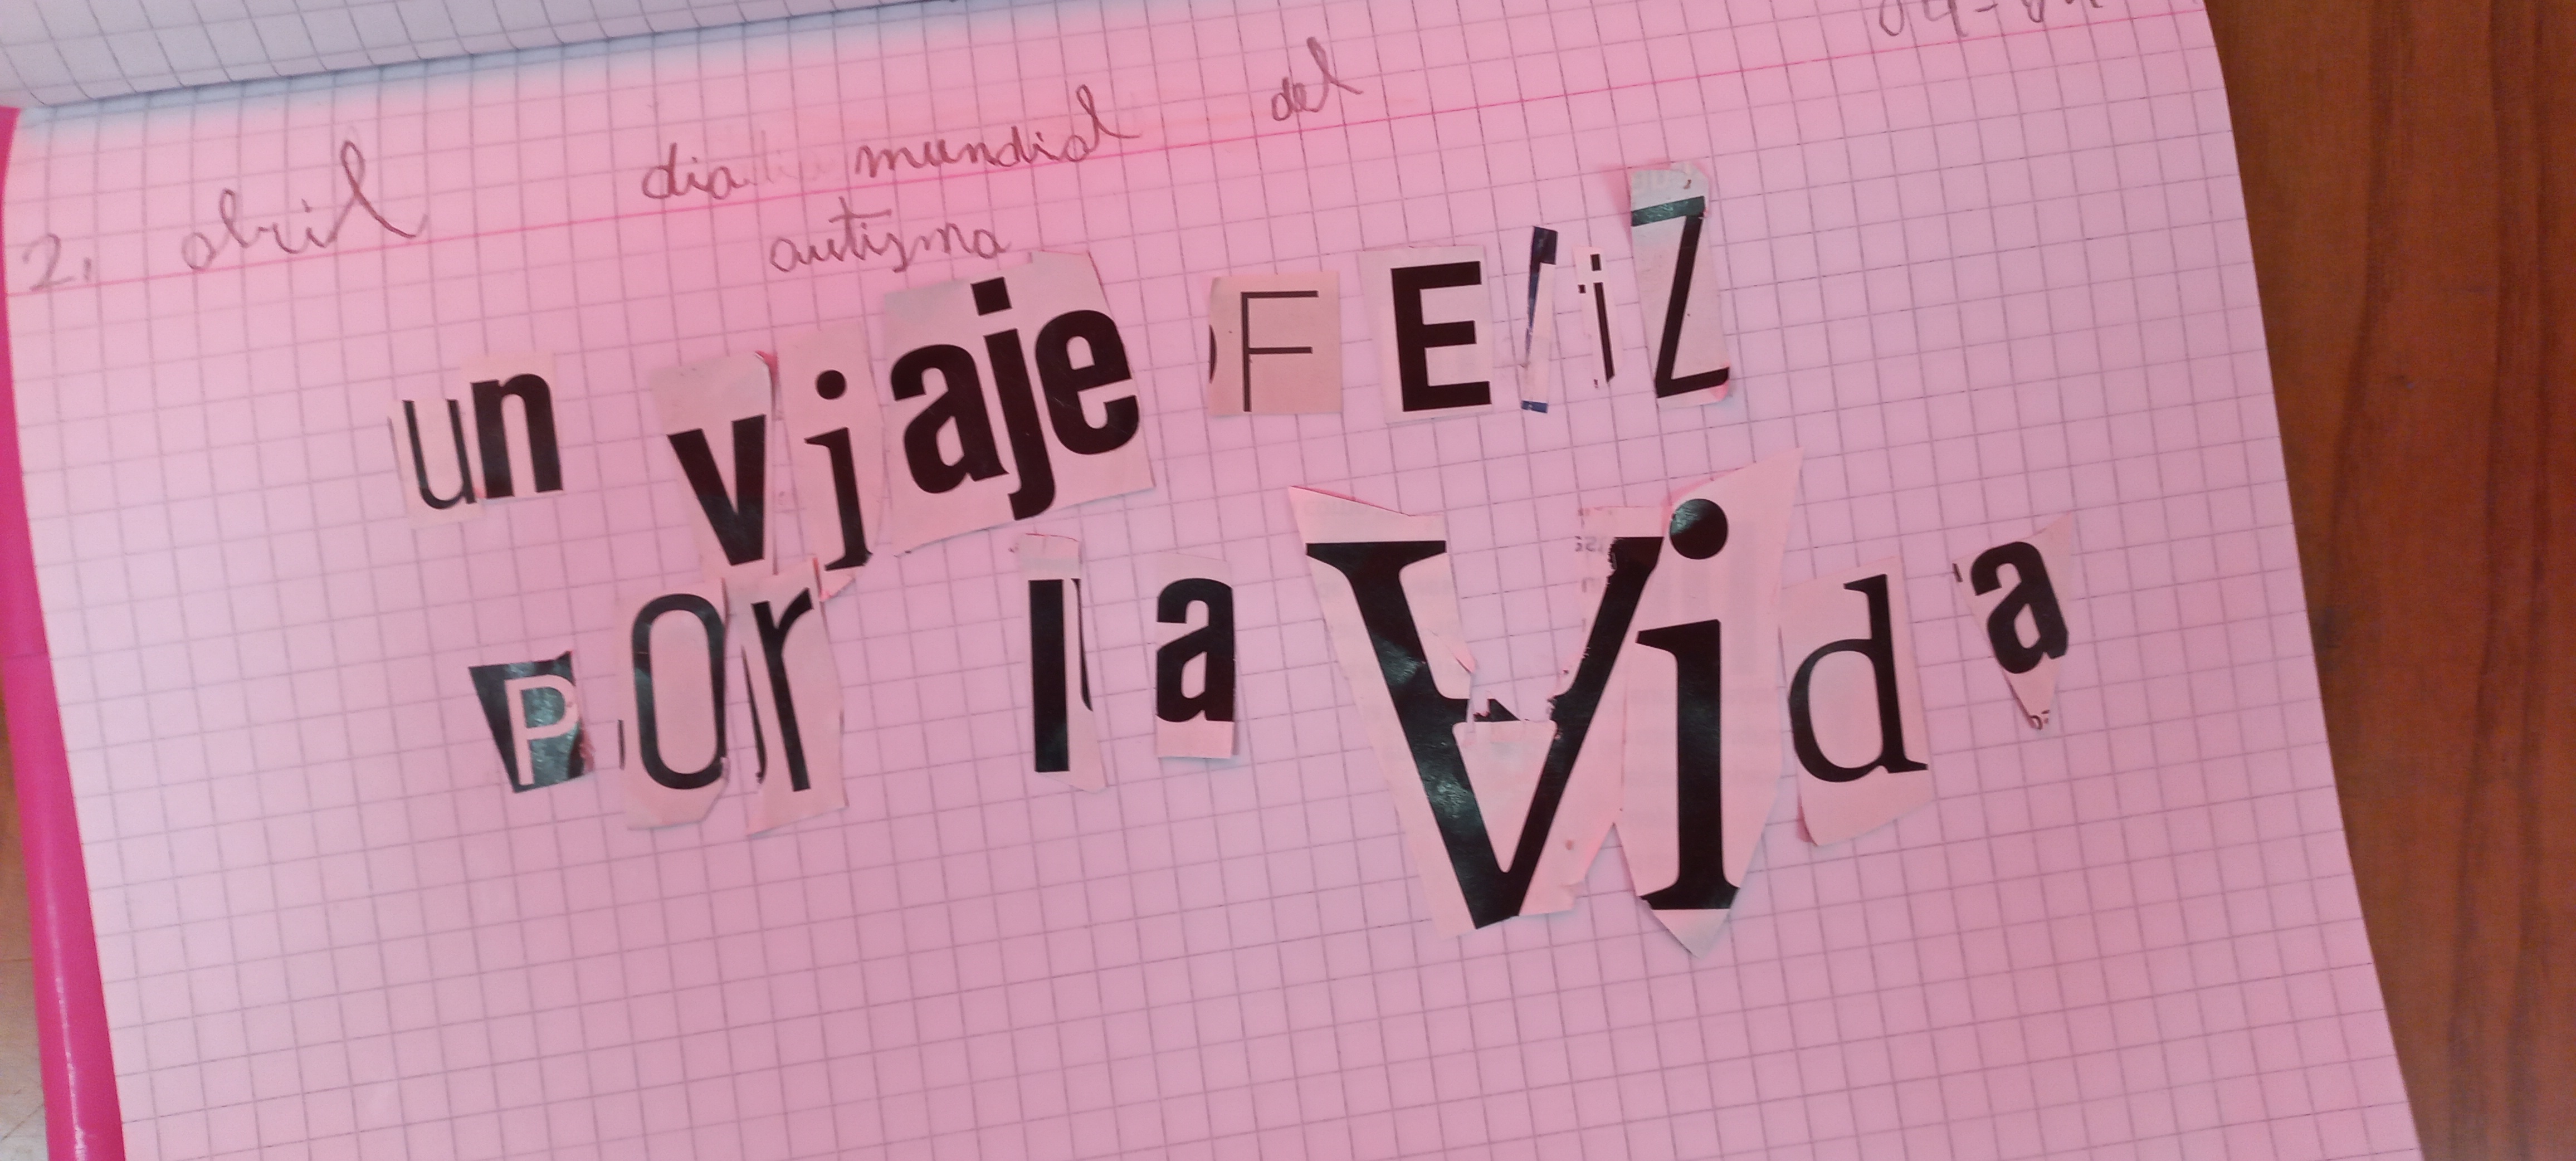 2. abril dia mundial del
autismo
un viaje FEliZ
Por la Vida